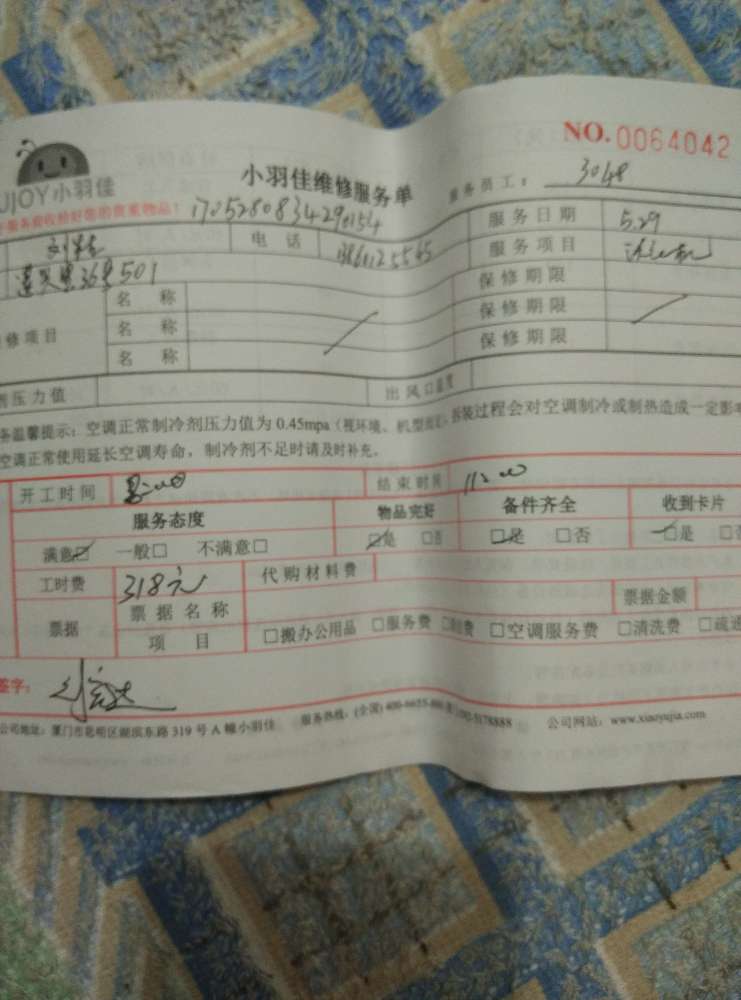 NO.0064042
UJOY小羽佳
小羽佳维修服务单
服务员工： 3048
服务前收拾好您的贵重物品！
电话 服务日期 5.29
36号501 服务项目
名称 保修期限
修项目 名称 保修期限
名称 保修期限
剂压力值 出风口温度
务温馨提示：空调正常制冷剂压力值为 0.45mpa（视环境、机型而定），拆装过程会对空调制冷或制热造成一定影
空调正常使用延长空调寿命，制冷剂不足时请及时补充。
开工时间 结束时间 11:00
服务态度 物品完好 备件齐全 收到卡片
满意 一般 不满意 是 否 是 否 是 否
工时费 318元 代购材料费
票据 票据名称 票据金额
项目 搬办公用品 服务费 空调服务费 清洗费 疏通
签字：
公司地址：厦门市思明区湖滨东路 319 号 A 幢小羽佳 服务热线：(全国) 公司网站：www.xiaoyujia.com